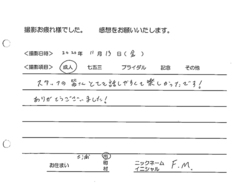 撮影お疲れ様でした。 感想をお願いいたします。
＜撮影日時＞ 2020年 11月 13日 (金)
＜撮影項目＞ 成人 七五三 ブライダル 記念 その他
スタッフの皆さんとても話しやすくて楽しかったです!
ありがとうございました!
お住まい 市 町 村
ニックネーム イニシャル F.M.